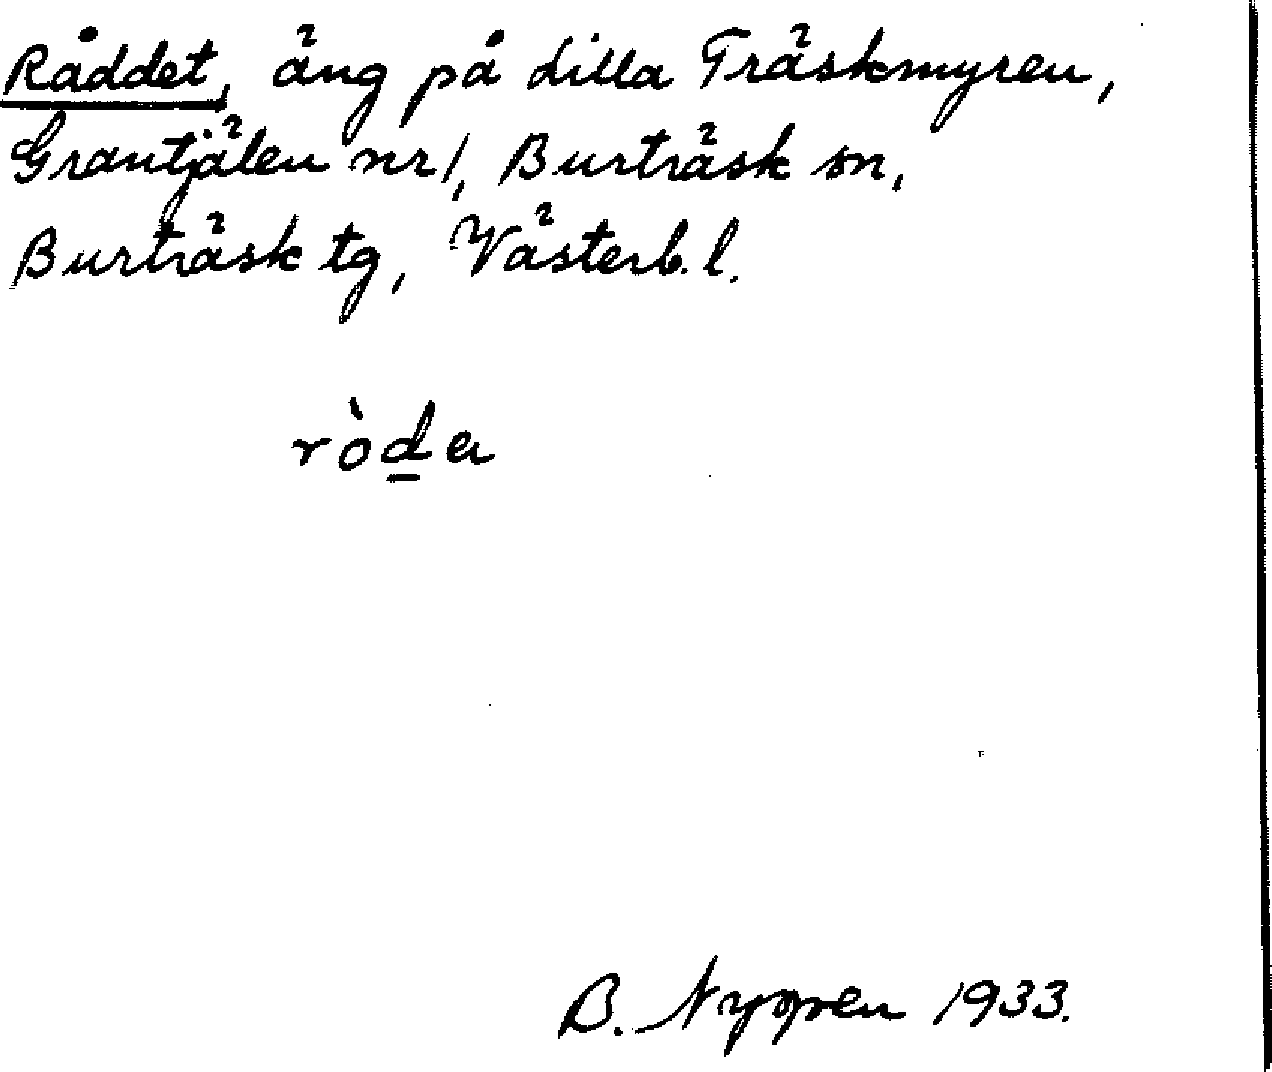 Råddet, äng på Lilla Träskmyren,
Grantjälen nr 1, Burträsk sn,
Burträsk tg, Västerb. l.
ròda
B. Nygren 1933.